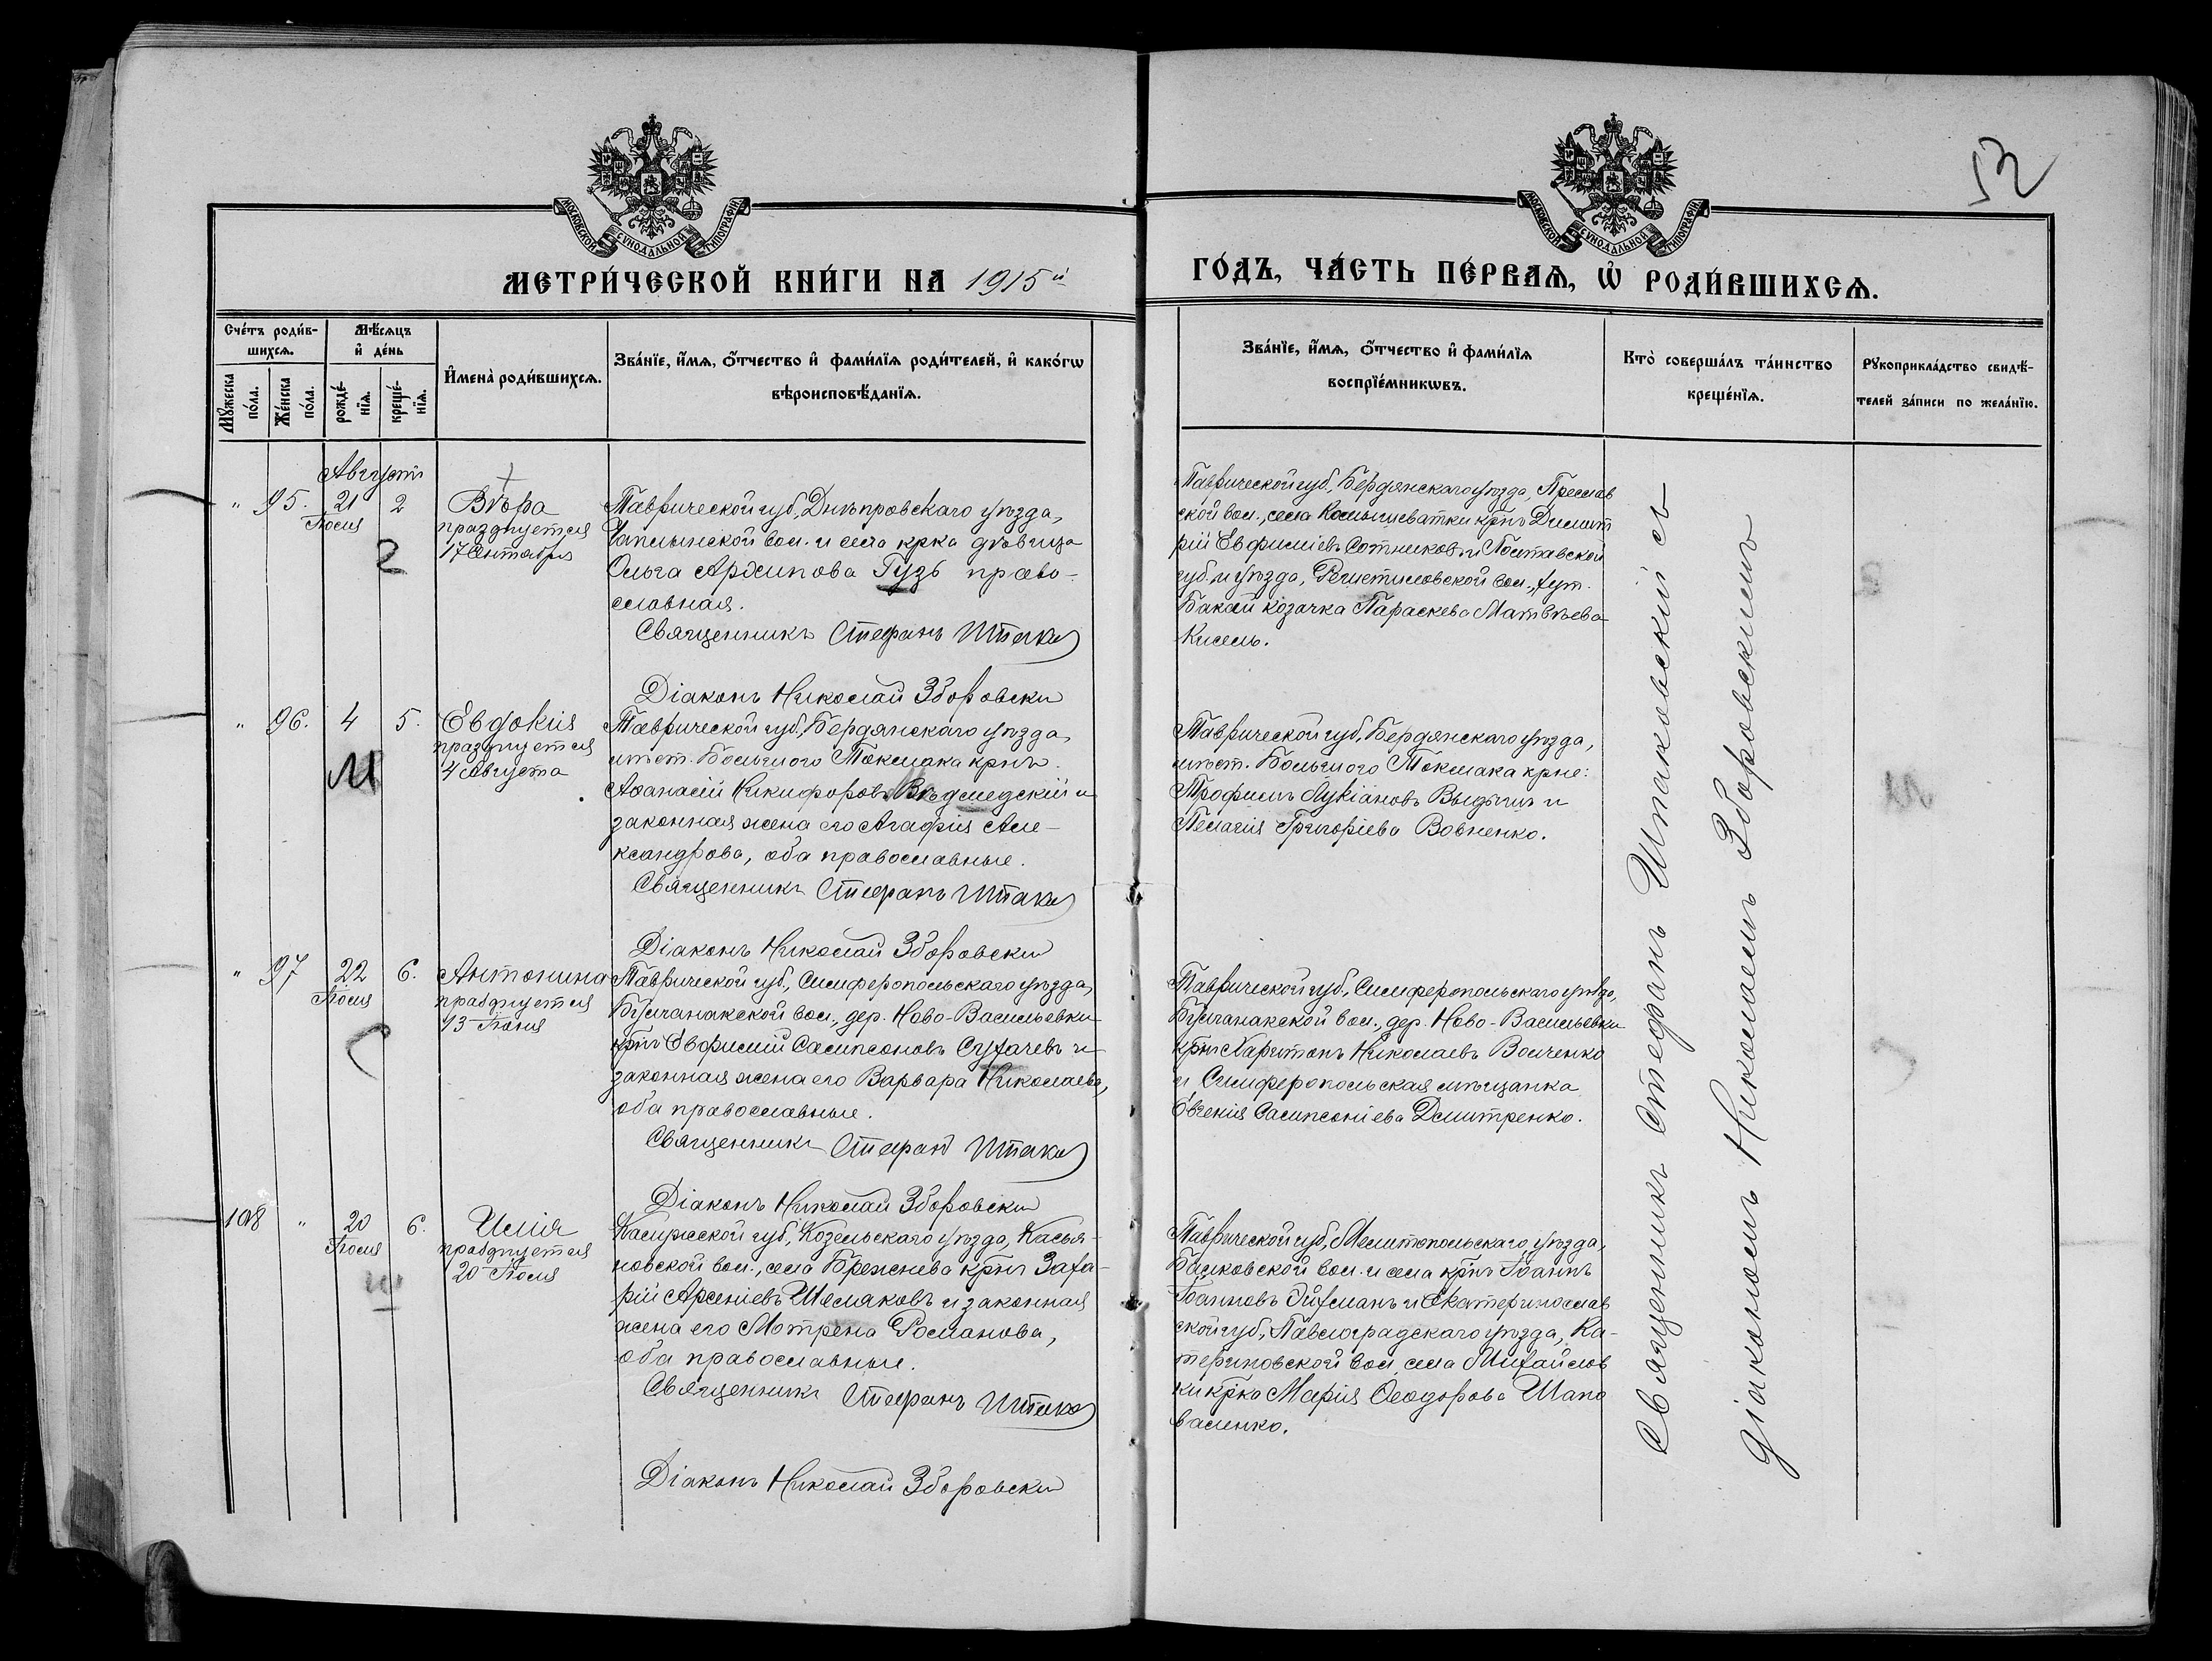 52
МОСКОВСКОЙ СУНОДАЛЬНОЙ ТИПОГРАФІИ
МОСКОВСКОЙ СУНОДАЛЬНОЙ ТИПОГРАФІИ
МЕТРИ́ЧЕСКОЙ КНИ́ГИ НА 1915й
ГО́ДЪ, ЧА́СТЬ ПЕ́РВАѦ, Ѡ҆ РОДИ́ВШИХСѦ.
Сче́тъ роди́в-
шихсѧ.
Мꙋ́жеска по́ла.
Же́нска по́ла.
Мѣ́сѧцъ
и҆ де́нь
рожде́-нїѧ.
креще́-нїѧ.
И҆мена̀ роди́вшихсѧ.
Зва́нїе, и҆́мѧ, ѻ҆́тчество и҆ фами́лїѧ роди́телей, и҆ како́гѡ
вѣроисповѣ́данїѧ.
Зва́нїе, и҆́мѧ, ѻ҆́тчество и҆ фами́лїѧ
воспрїе́мникѡвъ.
Кто̀ соверша́лъ та́инство
креще́нїѧ.
Рꙋкоприкла́дство свидѣ́-
телей за́писи по жела́нїю.
Августъ
" 95. 21 2
Іюля
2
Вѣра
празднуется
17 Сентября
Таврической губ., Днѣпровскаго уѣзда,
Чаплынской вол. и села крка дѣвица
Ольга Архипова Гузь право-
славная.
Священникъ Стефанъ Шпаков
Діаконъ Николай Зборовски
Таврической губ., Бердянскаго уѣзда, Преслав
ской вол., села крнъ Димит
рій Евфиміевъ Сотниковъ и Полтавской
губ. и уѣзда, Решетиловской вол., хут.
Бакай козачка Параскева Матвѣева
Кисель.
" 96. 4 5.
М
Евдокія
празднуется
4 Августа
Таврической губ., Бердянскаго уѣзда,
мѣст. Большого Токмака крнъ
Аѳанасій Никифоровъ Вѣдмедскій и
законная жена его Агафія Але-
ксандрова, оба православные.
Священникъ Стефанъ Шпаков
Діаконъ Николай Зборовски
Таврической губ., Бердянскаго уѣзда,
мѣст. Большого Токмака крне:
Трофимъ Лукіановъ и
Пелагія Григоріева Вовненко.
" 97 22 6.
Іюля
С
Антонина
празднуется
13 Іюня
Таврической губ., Симферопольскаго уѣзда,
Булганакской вол., дер. Ново-Васильевки
крнъ Евфимій Сампсоновъ Сухачевъ и
законная жена его Варвара Николаева,
оба православные.
Священникъ Стефанъ Шпаков
Діаконъ Николай Зборовски
Таврической губ., Симферопольскаго уѣзда,
Булганакской вол., дер. Ново-Васильевки
крнъ Харитонъ Николаевъ Волченко
и Симферопольская мѣщанка
Евгенія Сампсоніева Дмитренко.
108 " 20 6.
Іюля
Ш
Илія
празднуется
20 Іюля
Калужской губ., Козельскаго уѣзда, Касья-
новской вол., села Брежнева крнъ Заха-
рій Арсеніевъ Шемяковъ и законная
жена его Мотрена Романова,
оба православные.
Священникъ Стефанъ Шпаков
Діаконъ Николай Зборовски
Таврической губ., Мелитопольскаго уѣзда,
Балковской вол. и села крнъ Іоаннъ
Іоанновъ Эйхманъ и Екатеринослав
ской губ., Павлоградскаго уѣзда, Ка-
териновской вол. села Михайлов
ки крка Марія Ѳеодорова Шапо
валенко.
Священникъ Стефанъ Шпаковскій съ
діакономъ Николаемъ Зборовскимъ